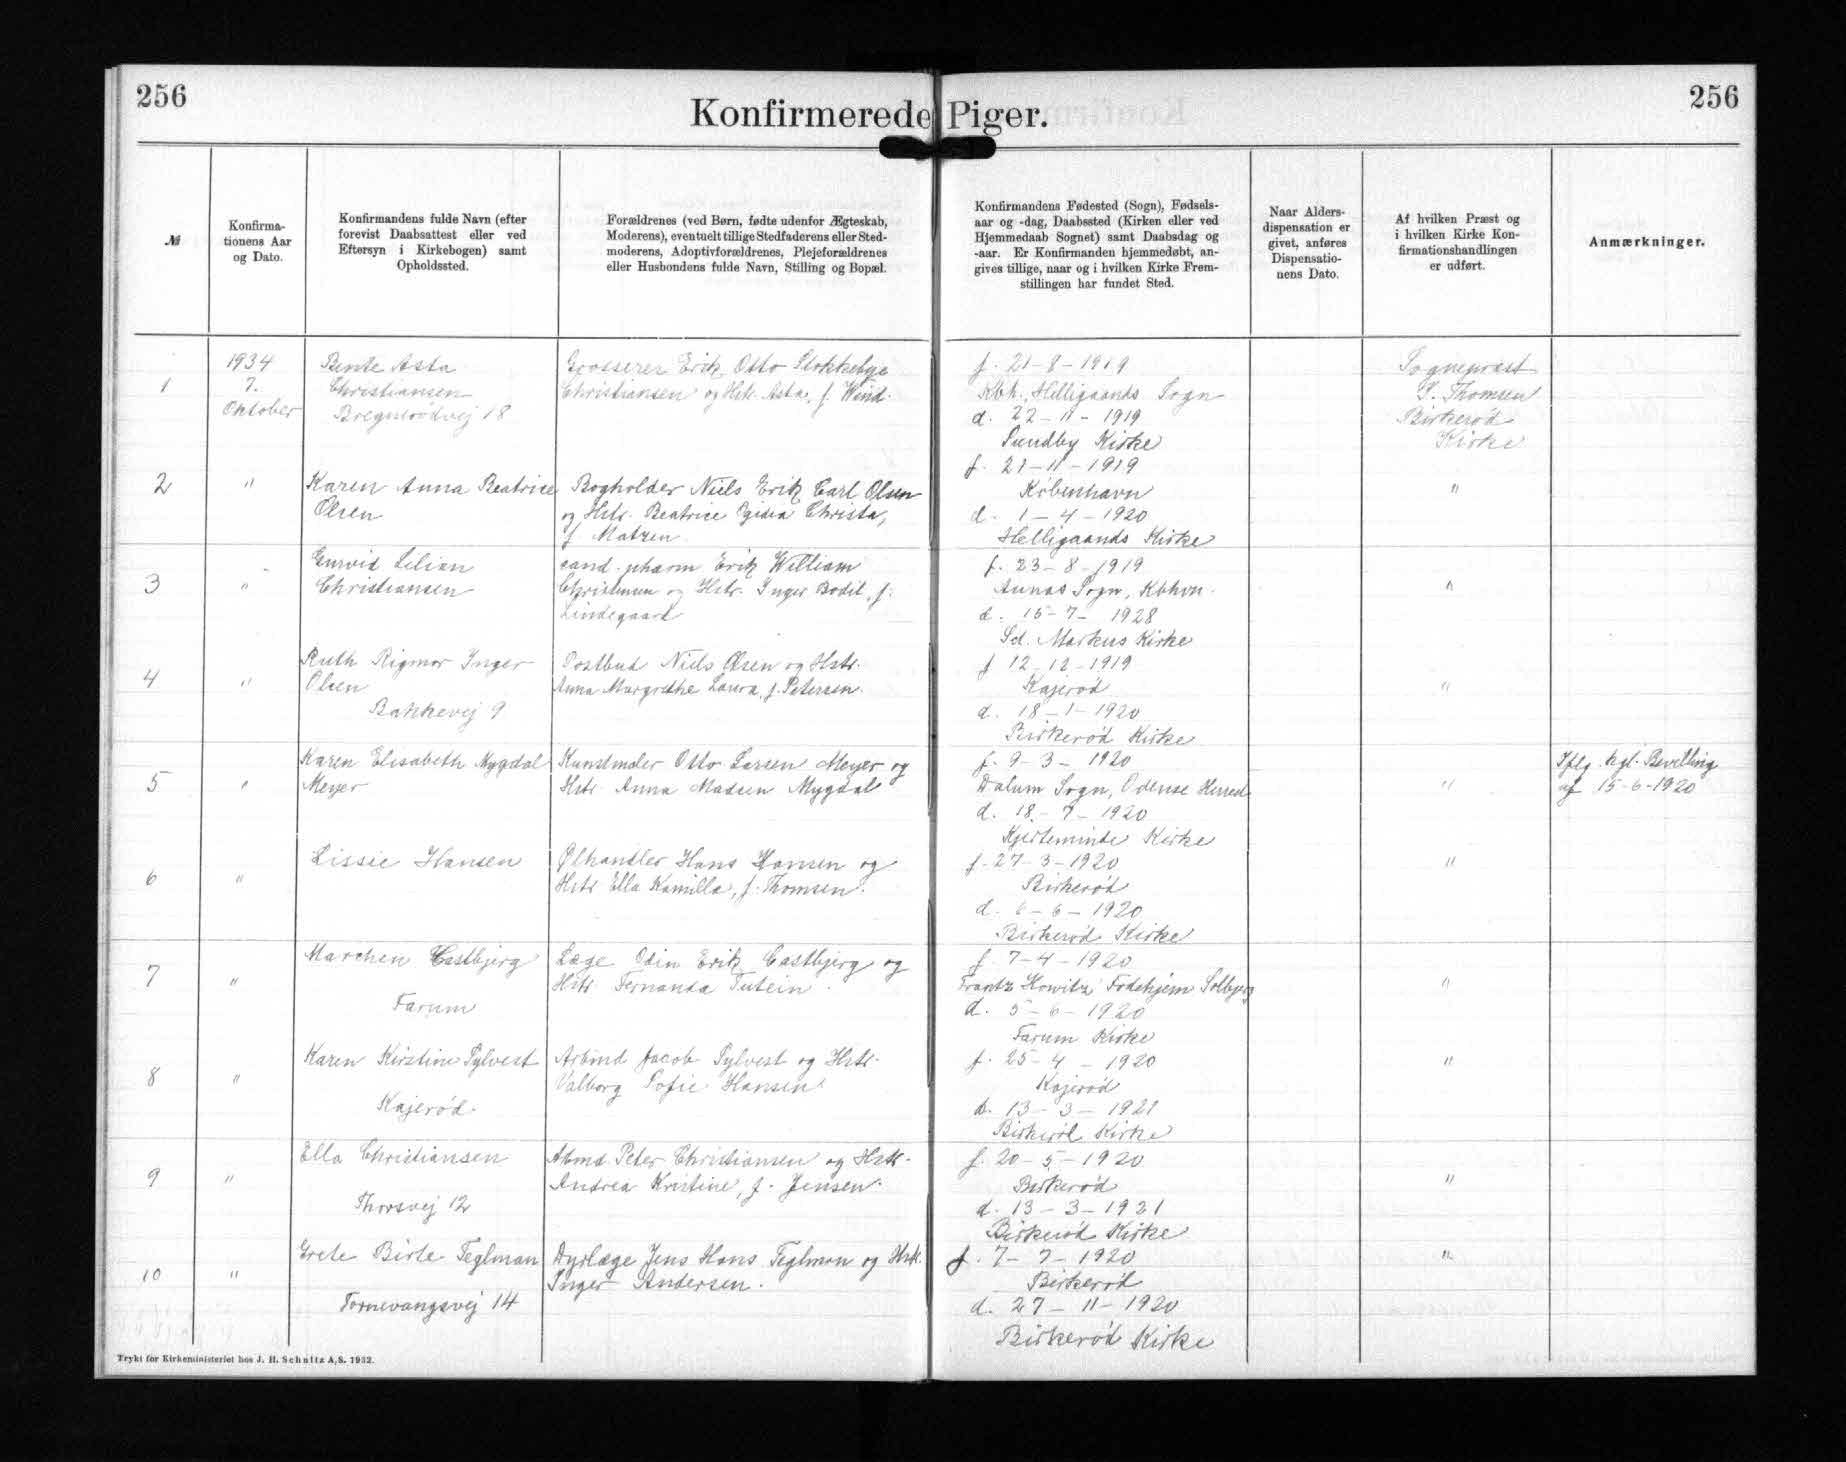 256
256
Konfirmerede Piger.
№
Konfirma-
tionens Aar
og Dato.
Konfirmandens fulde Navn (efter
forevist Daabsattest eller ved
Eftersyn i Kirkebogen) samt
Opholdssted.
Forældrenes (ved Børn, fødte udenfor Ægteskab,
Moderens), eventuelt tillige Stedfaderens eller Sted-
moderens, Adoptivforældrenes, Plejeforældrenes
eller Husbondens fulde Navn, Stilling og Bopæl.
Konfirmandens Fødested (Sogn), Fødsels-
aar og -dag, Daabssted (Kirken eller ved
Hjemmedaab Sognet) samt Daabsdag og
-aar. Er Konfirmanden hjemmedøbt, an-
gives tillige, naar og i hvilken Kirke Frem-
stillingen har fundet Sted.
Naar Alders-
dispensation er
givet, anføres
Dispensatio-
nens Dato.
Af hvilken Præst og
i hvilken Kirke Kon-
firmationshandlingen
er udført.
Anmærkninger.
1
1934
7.
Oktober
Bente Asta
Christiansen
Bregnerødvej 18
Grosserer Erik Otto Stokkebye
Christiansen og Hstr. Asta, f. Wind.
f. 21-8-1919
Kbh., Helligaands Sogn
d. 22-11-1919
Sundby Kirke
Sognepræst
Thomsen
Birkerød
Kirke
2
"
Karen Anna Beatrice
Olsen
Bogholder Niels Erik Carl Olsen
og Hstr. Beatrice Christa,
f. Matzen
f. 21-11-1919
København
d. 1-4-1920
Helligaands Kirke
"
3
"
Gurvid Lilian
Christiansen
cand. pharm Erik William
Christensen og Hstr. Inger Bodil, f.
Lindegaard
f. 23-8-1919
Annas Sogn, Kbhvn.
d. 15-7-1928
Sct. Markus Kirke
"
4
"
Ruth Rigmor Inger
Olsen
Bakkevej 9
Postbud Niels Olsen og Hstr.
Anna Margrethe Laura, f. Petersen.
f. 12-12-1919
Kajerød
d. 18-1-1920
Birkerød Kirke
"
5
"
Karen Elisabeth Mygdal
Meyer
Kunstmaler Otto Larsen Meyer og
Hstr. Anna Madsen Mygdal
f. 9-3-1920
Dalum Sogn, Odense Herred
d. 18-7-1920
Kjerteminde Kirke
"
Iflg. kgl. Bevilling
af 15-6-1920
6
"
Lissie Hansen
Ølhandler Hans Hansen og
Hstr. Ella Kamilla, f. Thomsen.
f. 27-3-1920
Birkerød
d. 6-6-1920
Birkerød Kirke
"
7
"
Marchen Castbjerg
Farum
Læge Odin Erik Castbjerg og
Hstr. Fernanda Tutein.
f. 7-4-1920
Frantz Howitz' Fødehjem Solbjerg
d. 5-6-1920
Farum Kirke
"
8
"
Karen Kirstine Sylvest
Kajerød.
Arbmd Jacob Sylvest og Hstr.
Valborg Sofie Hansen
f. 25-4-1920
Kajerød
d. 13-3-1921
Birkerød Kirke
"
9
"
Ella Christiansen
Thorsvej 12
Abmd. Peter Christiansen og Hstr.
Andrea Kristine, f. Jensen.
f. 20-5-1920
Birkerød
d. 13-3-1921
Birkerød Kirke
"
10
"
Grete Birte Teglman
Tornevangsvej 14
Dyrlæge Jens Hans Teglman og Hstr.
Inger Andersen.
f. 7-7-1920
Birkerød
d. 27-11-1920
Birkerød Kirke
"
Trykt for Kirkeministeriet hos J. H. Schultz A/S. 1932.